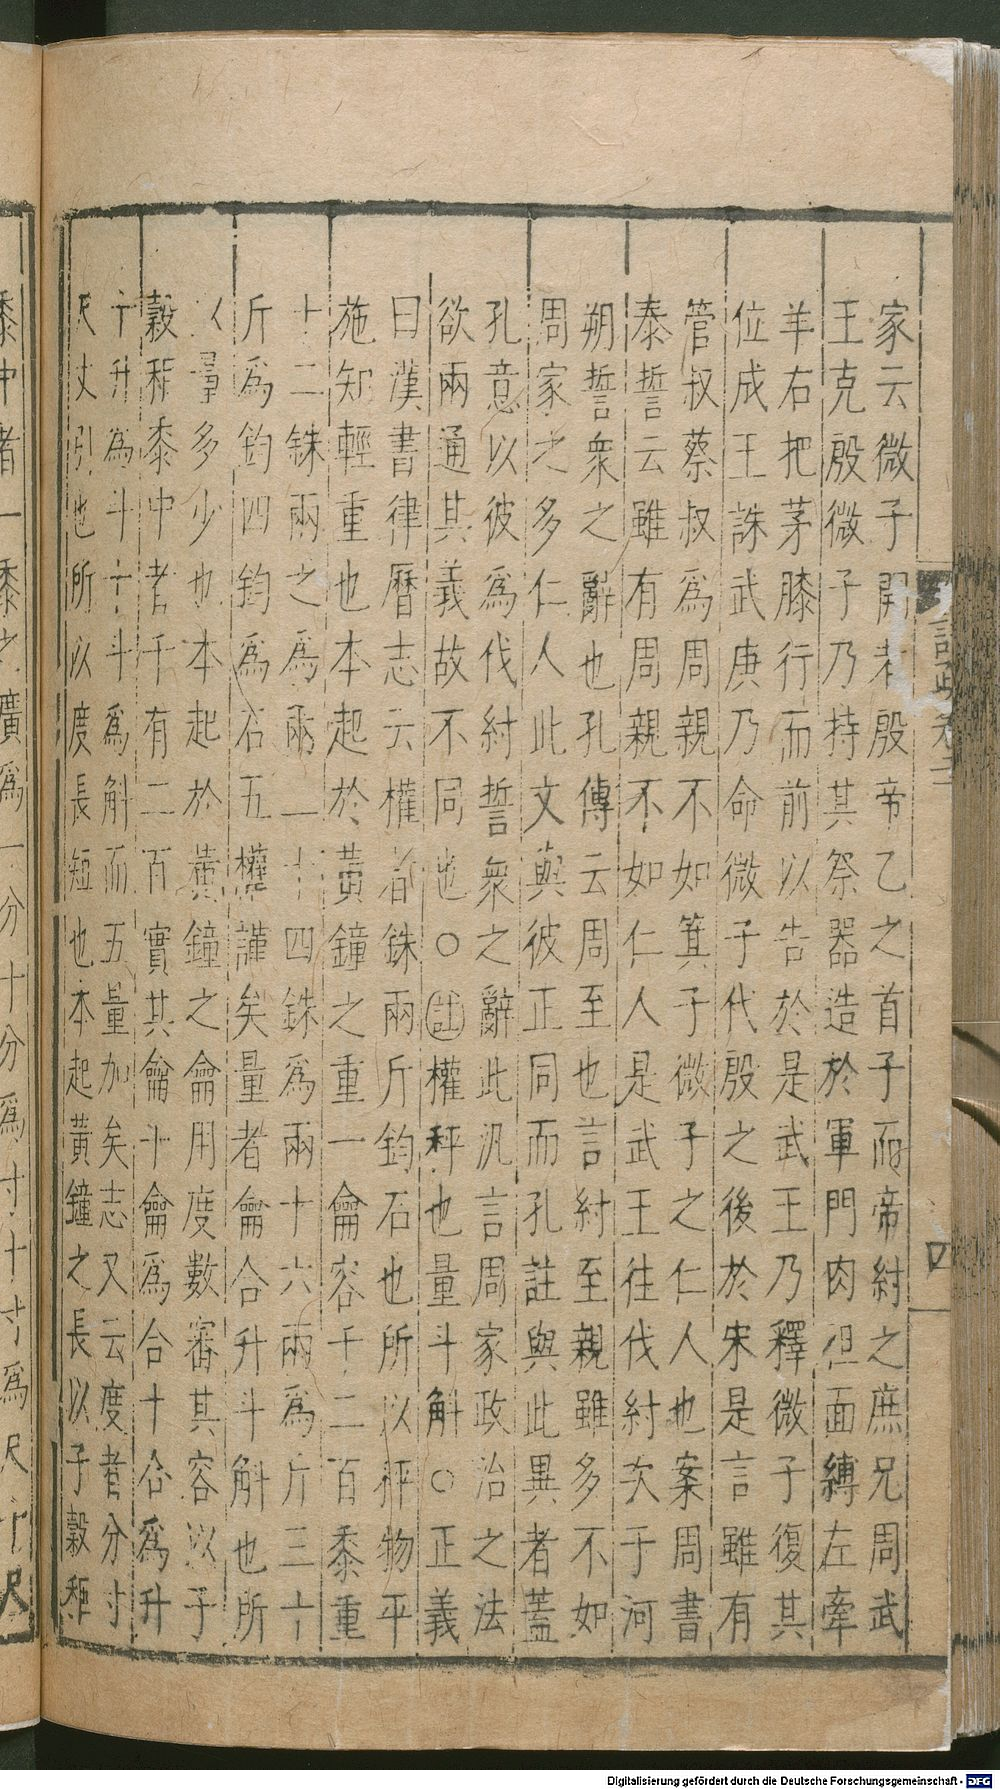 家云微子開者殷帝乙之首子而帝紂之庶兄周武
王克殷微子乃持其祭器造於軍門肉袒面縛左牽
羊右把茅膝行而前以告於是武王乃釋微子復其
位成王誅武庚乃命微子代殷之後於宋是言雖有
管叔蔡叔為周親不如箕子微子之仁人也案周書
泰誓云雖有周親不如仁人是武王往伐紂次于河
朔誓衆之辭也孔傳云周至也言紂至親雖多不如
周家之多仁人此文與彼正同而孔註與此異者蓋
孔意以彼為伐紂誓衆之辭此汎言周家政治之法
欲兩通其義故不同也○註權秤也量斗斛○正義
曰漢書律曆志云權者銖兩斤鈞石也所以秤物平
施知輕重也本起於黃鐘之重一龠容千二百黍重
十二銖兩之為兩二十四銖為兩十六兩為斤三十
斤為鈞四鈞為石五權謹矣量者龠合升斗斛也所
以量多少也本起於黃鐘之龠用度數審其容以子
穀秬黍中者千有二百實其龠十龠為合十合為升
十升為斗十斗為斛而五量加矣志又云度者分寸
尺丈引也所以度長短也本起黃鐘之長以子穀秬
黍中者一黍之廣為一分十分為寸十寸為尺十尺
四
Digitalisierung gefördert durch die Deutsche Forschungsgemeinschaft - DFG